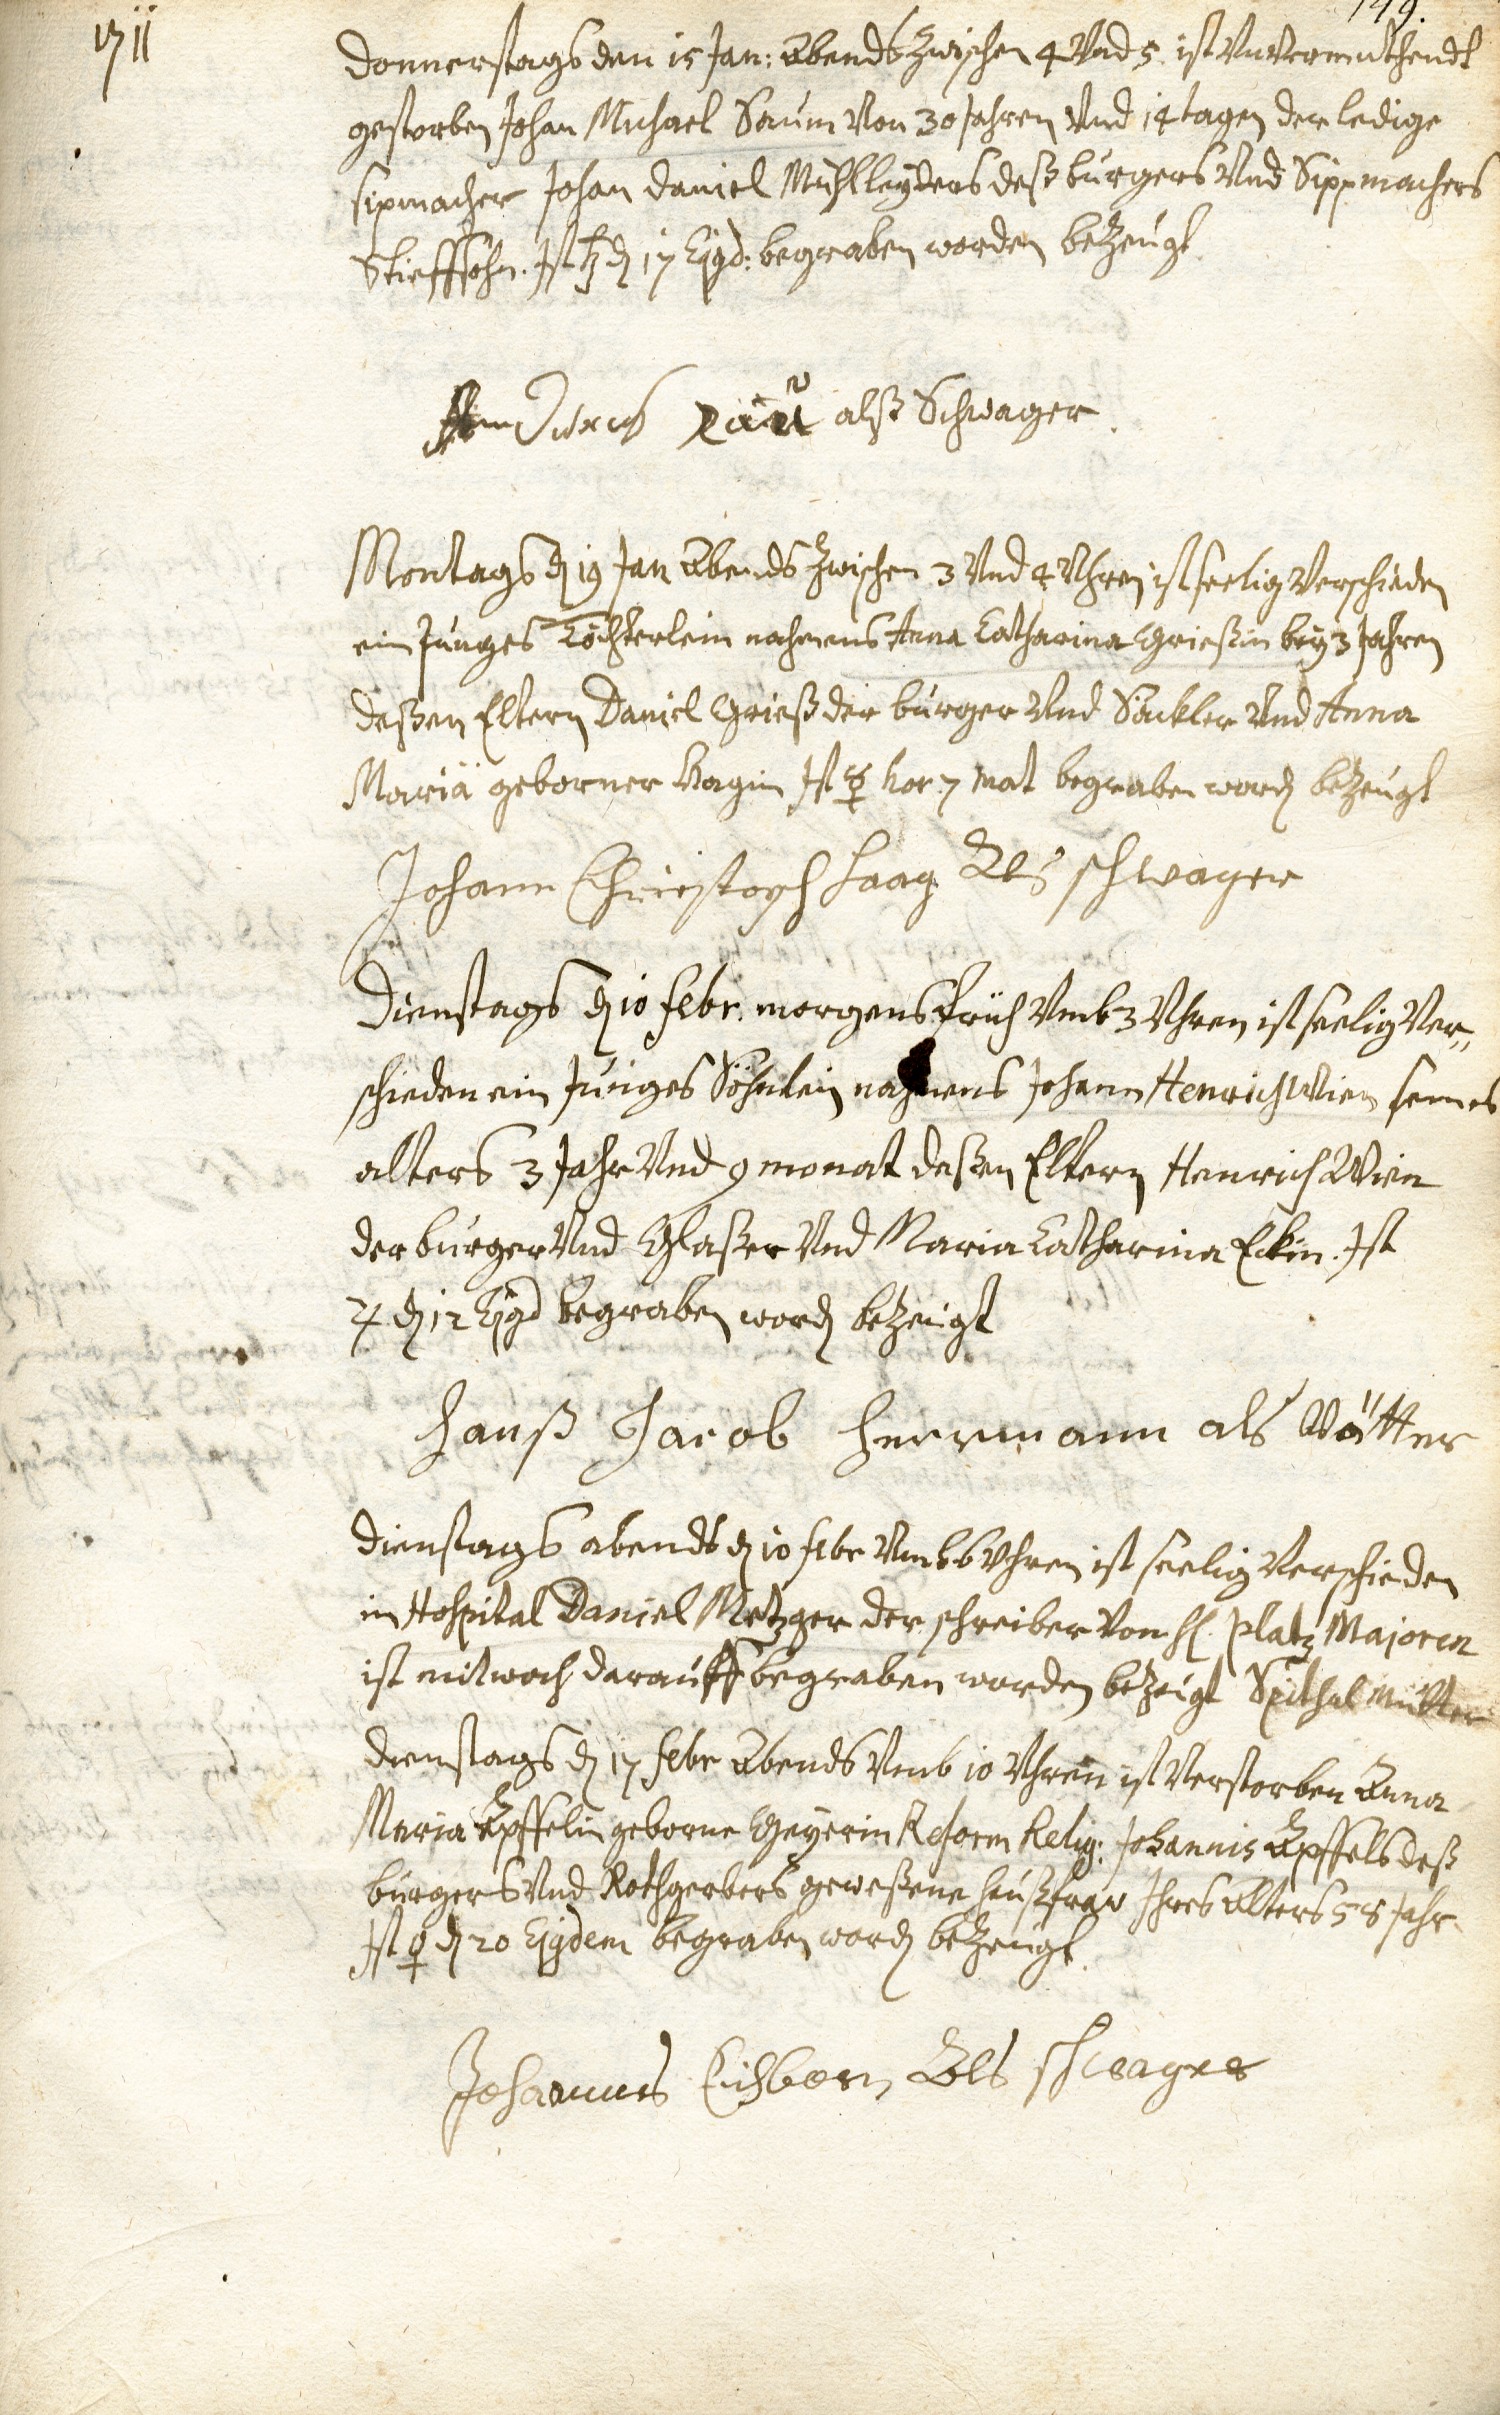 1711
149.
Donnerstags den 15 Jan: Abends zwischen 4 Vnd 5. ist Vnvermuthendt
gestorben Johan Michael Saum Von 30 Jahren Vnd 14 tagen der ledige
sipmacher Johan Daniel Mühlleyders deß burgers Vnd Sippmachers
Stieffsohn. Ist ♄ d 17 Ejgd: begraben worden bezeugt
alß Schwager.
Montags d 19 Jan Abends zwischen 3 Vnd 4 Vhren ist seelig Verschieden
ein Junges Töchterlein nahmens Anna Catharina Grießin bey 3 Jahren
deßen Eltern Daniel Grieß der burger Vnd Säckler Vnd Anna
Mariä geborner Haagin Ist ☿ hor. 7 mat begraben word bezeugt
Johann Christoph Haag Als schwager
Dienstags d 10 febr. morgens früh Vmb 3 Vhren ist seelig Ver„
schieden ein Junges Söhnlein nahmens Johann Henrich Wien seines
alters 3 Jahr Vnd 9 monat deßen Eltern Henrich Wien
der burger Vnd Glaßer Vnd Maria Catharina Eckin. Ist
♃ d 12 Ejgd begraben word bezeugt
Hanß Jacob Herrmann als Vätter
Dienstags abends d 10 febr Vmb 6 Vhren ist seelig Verschieden
im Hospital Daniel Metzger der schreiber Von H. Platz Majoren
ist mitwoch darauff begraben worden bezeugt Spithal Mutter
Dienstags d 17 febr Abends Vmb 10 Vhren ist Verstorben Anna
Maria Äpffelin geborne Geyerin Reform Relig: Johannis Äpffels deß
burgers Vnd Rothgerbers geweßene haußfraw Ihres Alters 58 Jahr
Ist ♀ d 20 Ejgdem begraben word bezeugt
Johannes Eichborn Als schwager